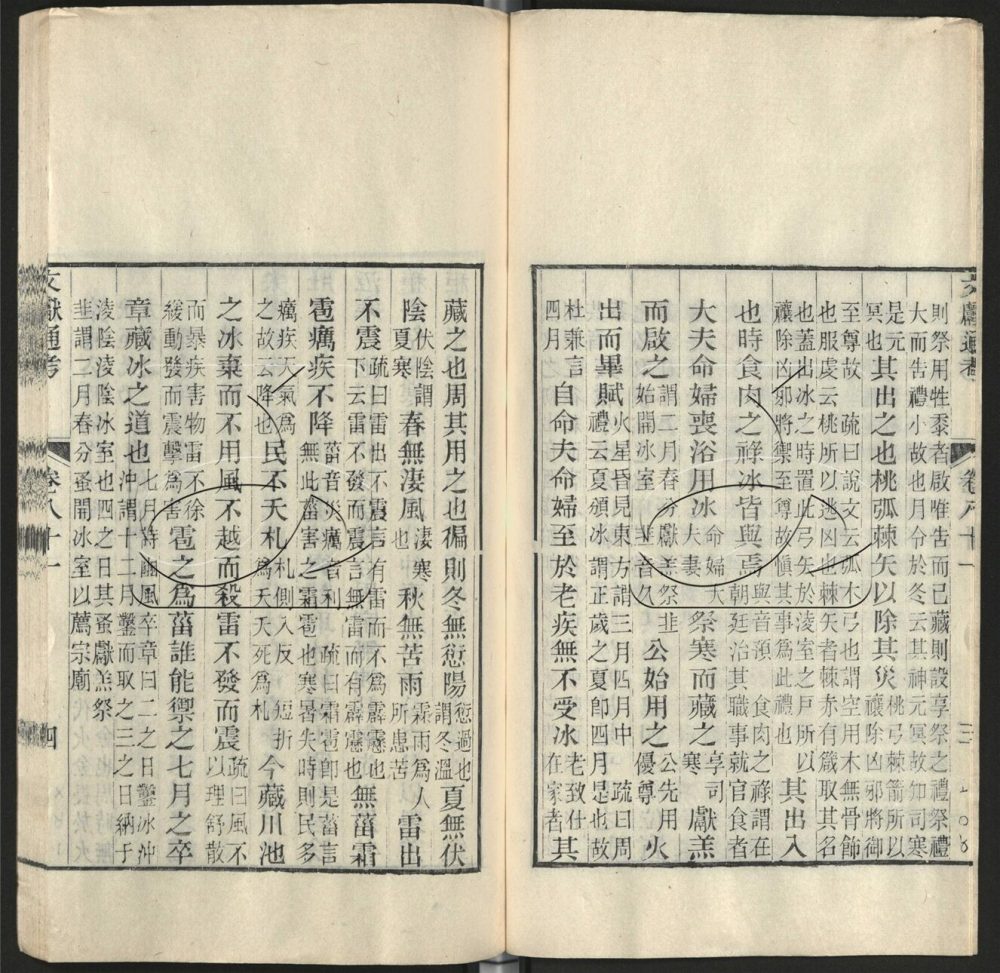 文獻通考 卷八十一 三
則祭用牲黍者啟唯告而已藏則設享祭之禮祭禮
大而告禮小故也月分於冬云其神元冥故知司寒
是元
冥也
其出之也桃弧棘矢以除其災
桃弓棘箭所以
禳除凶邪將御
至尊故 疏曰說文云弧木弓也謂空用木無骨飾
也服虔云桃所以逃凶也棘矢者棘赤有箴取其名
也蓋出冰之時置此弓矢於淩室之戶所以
禳除凶邪將禦至尊故慎其事爲此禮也
其出入
也時食肉之祿冰皆與焉
與音預 食肉之祿謂在
朝廷治其職事就官食者
大夫命婦喪浴用冰
命婦大
夫妻
祭寒而藏之
享司
寒
獻羔
而啟之
謂二月春分獻羔祭韭
始開冰室 韭音久
公始用之
公先用
優尊
火
出而畢賦
火星昏見東方謂三月四月中 疏曰周
禮云夏頒冰謂正歲之夏即四月是也故
杜兼言
四月
自命夫命婦至於老疾無不受冰
老致仕
在家者
其
藏之也周其用之也徧則冬無愆陽
愆過也
謂冬溫
夏無伏
陰
伏陰謂
夏寒
春無淒風
淒寒
也
秋無苦雨
霖雨爲人
所患苦
雷出
不震
疏曰雷出不震言有雷而不爲霹靂也
下云雷不發而震言無雷而有霹靂也
無菑霜
雹癘疾不降
菑音災癘音利 疏曰霜雹即是菑言
無此菑害之霜雹也寒暑失時則民多
癘疾天氣爲
之故云降也
民不夭札
札側入反 短折
爲夭夭死爲札
今藏川池
之冰棄而不用風不越而殺雷不發而震
疏曰風不
以理舒散
而暴疾害物雷不徐
緩動發而震擊爲害
雹之爲菑誰能禦之七月之卒
章藏冰之道也
七月詩豳風卒章曰二之日鑿冰沖
沖謂十二月鑿而取之三之日納于
淩陰淩陰冰室也四之日其蚤獻羔祭
韭謂二月春分蚤開冰室以薦宗廟
文獻通考 卷八十一 四